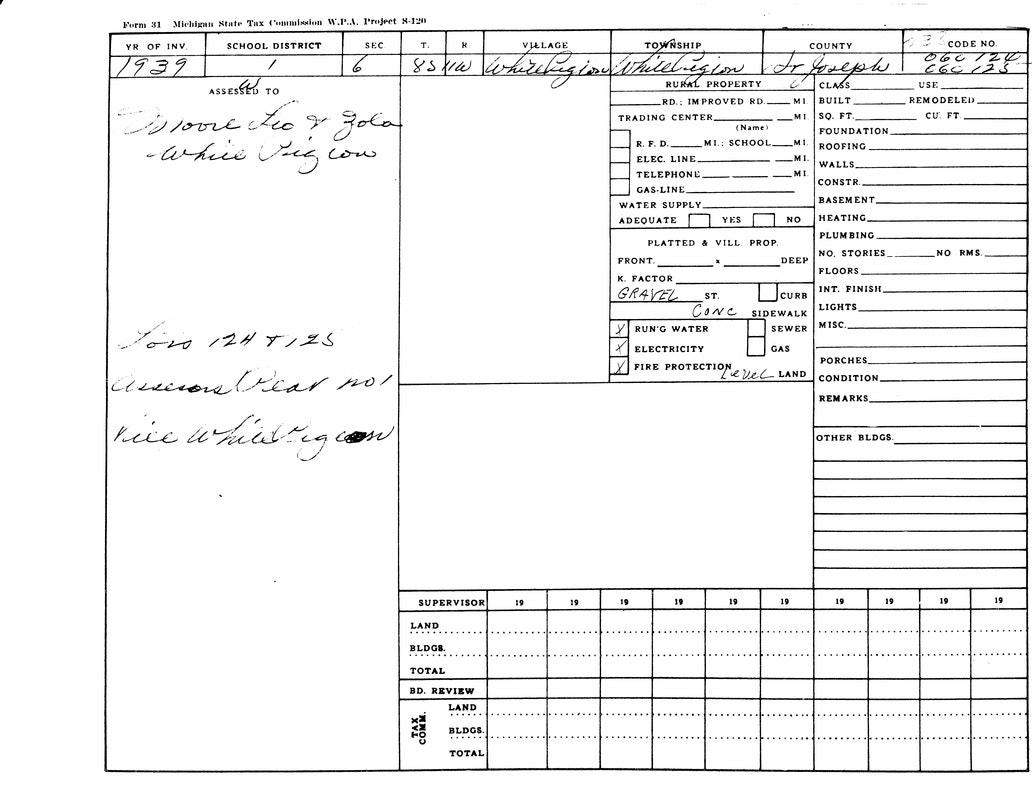 Form 31 Michigan State Tax Commission W.P.A. Project S-120
YR OF INV. SCHOOL DISTRICT SEC T. R VILLAGE TOWNSHIP COUNTY CODE NO.
1939 1 6 8S 11W White Pigion White Pigion St Joseph 060 124
060 125
ASSESSED TO
Moore Leo & Zola
White Pigion
Lots 124 & 125
Assessors Plat no 1
Vill White Pigeon
RURAL PROPERTY
RD.; IMPROVED RD. MI.
TRADING CENTER MI.
(Name)
R. F. D. MI.; SCHOOL MI.
ELEC. LINE MI.
TELEPHONE MI.
GAS-LINE
WATER SUPPLY
ADEQUATE YES NO
PLATTED & VILL. PROP.
FRONT. x DEEP
K. FACTOR
GRAVEL ST. CURB
CONC SIDEWALK
X RUN'G WATER SEWER
X ELECTRICITY GAS
X FIRE PROTECTION
Level LAND
CLASS USE
BUILT REMODELED
SQ. FT. CU. FT.
FOUNDATION
ROOFING
WALLS
CONSTR.
BASEMENT
HEATING
PLUMBING
NO. STORIES NO RMS.
FLOORS
INT. FINISH
LIGHTS
MISC.
PORCHES
CONDITION
REMARKS
OTHER BLDGS.
SUPERVISOR 19 19 19 19 19 19 19 19 19 19
LAND
BLDGS.
TOTAL
BD. REVIEW
TAX COMM.
LAND
BLDGS.
TOTAL